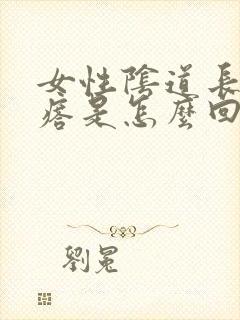 女性陰道長
痞是怎麼回
劉冕